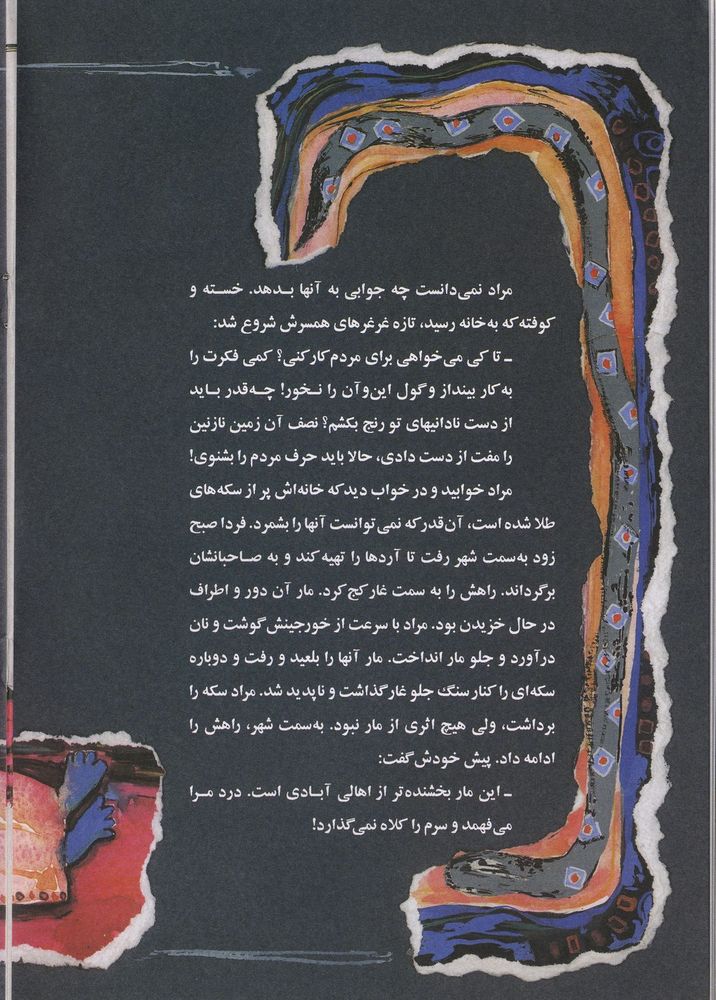 مراد نمی‌دانست چه جوابی به آنها بـدهد. خسـته و
کوفته که به‌خانه رسید، تازه غرغرهای همسرش شروع شد:
ـ تا کی می‌خواهی برای مردم کار کنی؟ کمی فکرت را
به کار بینداز و گول این‌وآن را نخور! چه‌قدر باید
از دست نادانیهای تو رنج بکشم؟ نصف آن زمین نازنین
را مفت از دست دادی، حالا باید حرف مردم را بشنوی!
مراد خوابید و در خواب دید که خانه‌اش پر از سکه‌های
طلا شده است، آن‌قدر که نمی‌توانست آنها را بشمرد. فردا صبح
زود به‌سمت شهر رفت تا آردها را تهیه کند و به صـاحبانشان
برگرداند. راهش را به سمت غار کج کرد. مار آن دور و اطراف
در حال خزیدن بود. مراد با سرعت از خورجینش گوشت و نان
درآورد و جلو مار انداخت. مار آنها را بلعید و رفت و دوباره
سکه‌ای را کنار سنگ جلو غار گذاشت و ناپدید شد. مراد سکه را
برداشت، ولی هیچ اثری از مار نبود. به‌سمت شهر، راهش را
ادامه داد. پیش خودش گفت:
ـ این مار بخشنده‌تر از اهالی آبـادی است. درد مـرا
می‌فهمد و سرم را کلاه نمی‌گذارد!